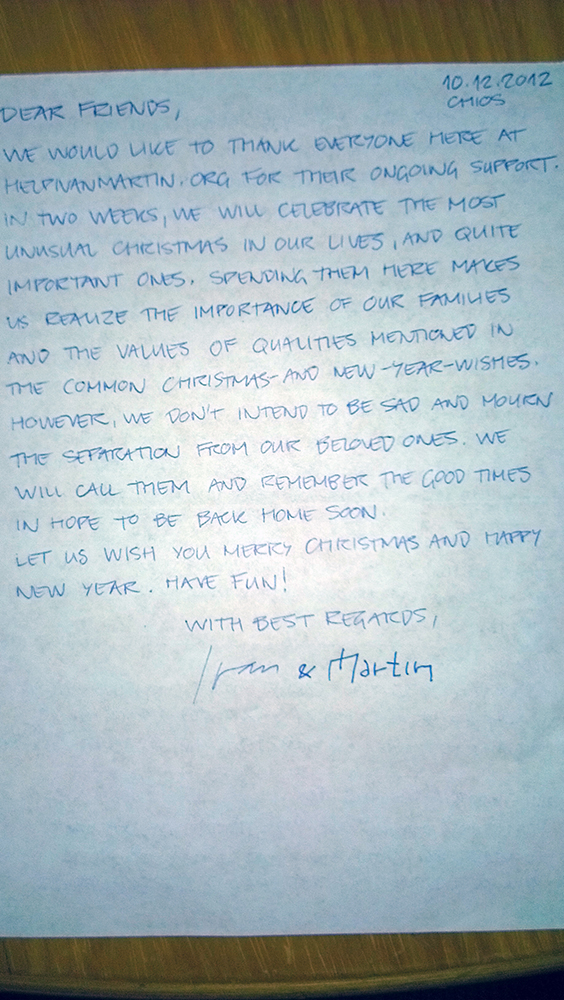 10.12.2012
CHIOS
DEAR FRIENDS,
WE WOULD LIKE TO THANK EVERYONE HERE AT
HELPIVANMARTIN.ORG FOR THEIR ONGOING SUPPORT.
IN TWO WEEKS, WE WILL CELEBRATE THE MOST
UNUSUAL CHRISTMAS IN OUR LIVES, AND QUITE
IMPORTANT ONES. SPENDING THEM HERE MAKES
US REALIZE THE IMPORTANCE OF OUR FAMILIES
AND THE VALUES OF QUALITIES MENTIONED IN
THE COMMON CHRISTMAS-AND NEW-YEAR-WISHES.
HOWEVER, WE DON'T INTEND TO BE SAD AND MOURN
THE SEPARATION FROM OUR BELOVED ONES. WE
WILL CALL THEM AND REMEMBER THE GOOD TIMES
IN HOPE TO BE BACK HOME SOON.
LET US WISH YOU MERRY CHRISTMAS AND HAPPY
NEW YEAR. HAVE FUN!
WITH BEST REGARDS,
Ivan & Martin